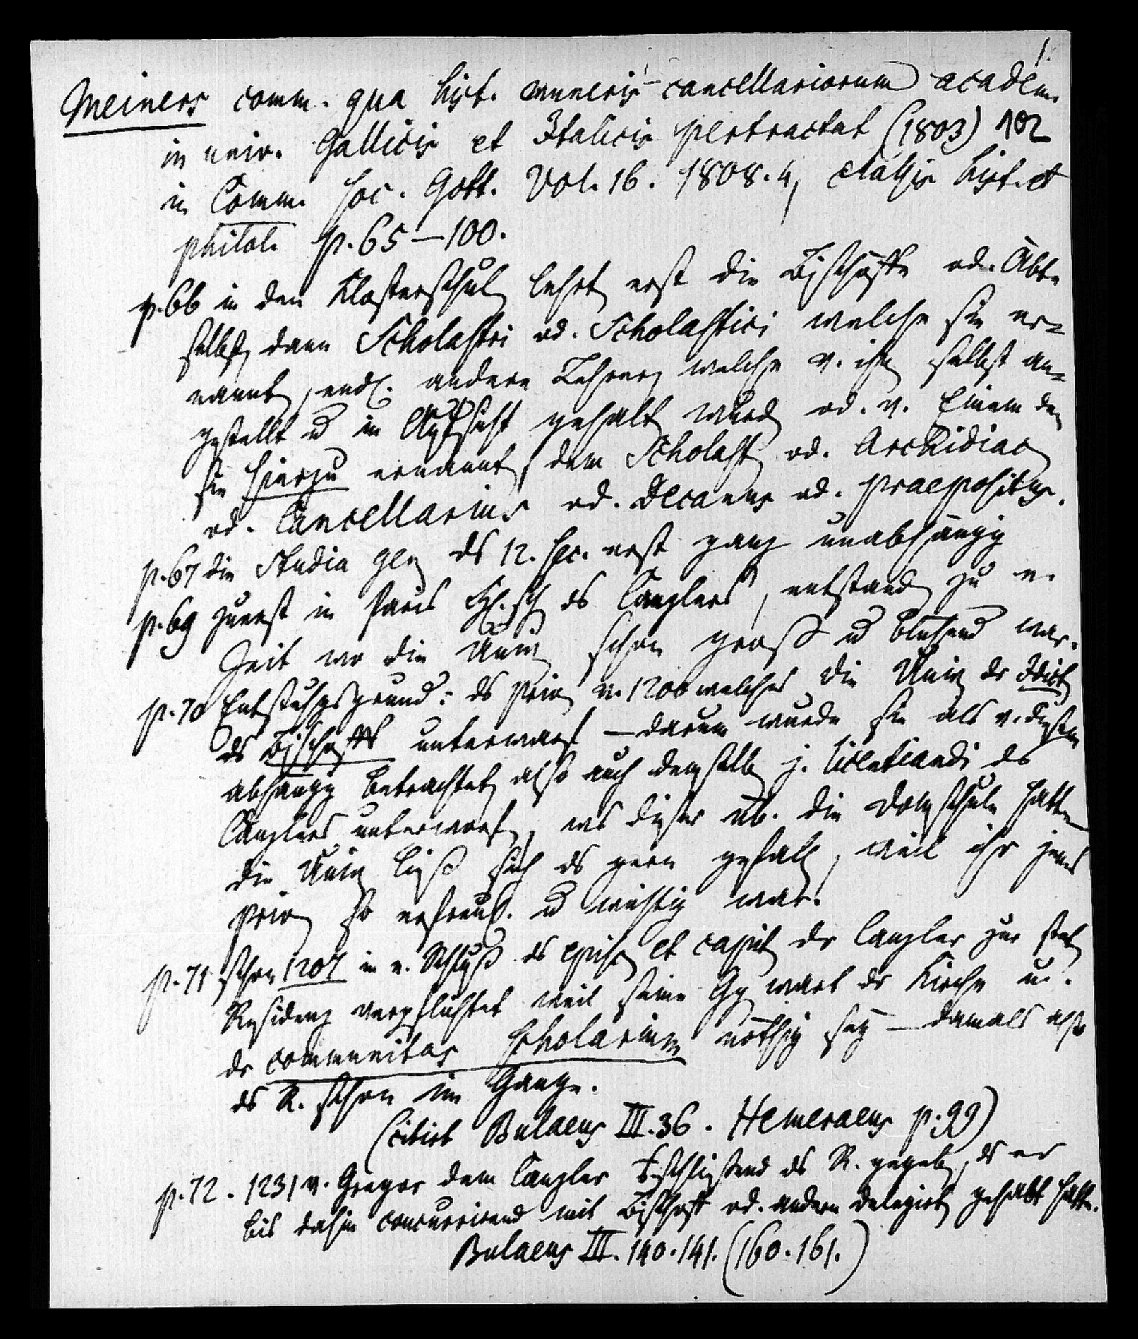 1.
Meiners comm. qua hist. muneris cancellariorum academ.
in univ. Gallicis et Italicis pertractat (1803) 102
in Comm. soc. Gott. Vol. 16. 1808. 4, classis hist. et
philol. p. 65–100.
p. 66 in den Klosterschulen lehrten erst die Bischöffe od. Äbte
selbst, dann Scholastri od. Scholastici welche sie er-
nannt, endl. andere Lehrer, welche v. ihn selbst an-
gestellt u in Aufsicht gehalt wurd od. v. Einem den
sie hierzu ernannt, dem Scholast. od. Archidiac
od. Cancellarius od. Decanus od. praepositus.
p. 67 die Studia gen ds 12. sec. erst ganz unabhängig
p. 69 zuerst in Paris ds Canzlers, entstand zu e.
Zeit wo die Univ schon groß u blühend war.
p. 70 Entstehgsgrund: ds Priv v. 1200 welches die Univ dr Jdict
ds Bischoffs unterwarf – darum wurde sie als v. diesem
abhängig betrachtet also auch demselb j. licentiandi ds
Canzlers unterworf, was dieser üb. die Domschule hatte
die Univ ließ sich ds gern gefall, weil ihr jenes
Priv so erfreul. u wichtig war.
p. 71 schon 1207 in e. Schluß ds episc et capit dr Canzler zur stet
Residenz verpflichtet weil seine Ggwart dr Kirche u.
dr communitas scholarium nöthig sey – damals also
ds R. schon im Gange.
(citirt Bulaeus III. 36. Hemeraeus p. 99)
p. 72. 1231 v. Gregor dem Canzler ds R. gegeb, ds er
bis dahin concurrirend mit Bischoff od. andern Delegirt gehabt hatte.
Bulaeus III. 140. 141. (160. 161.)